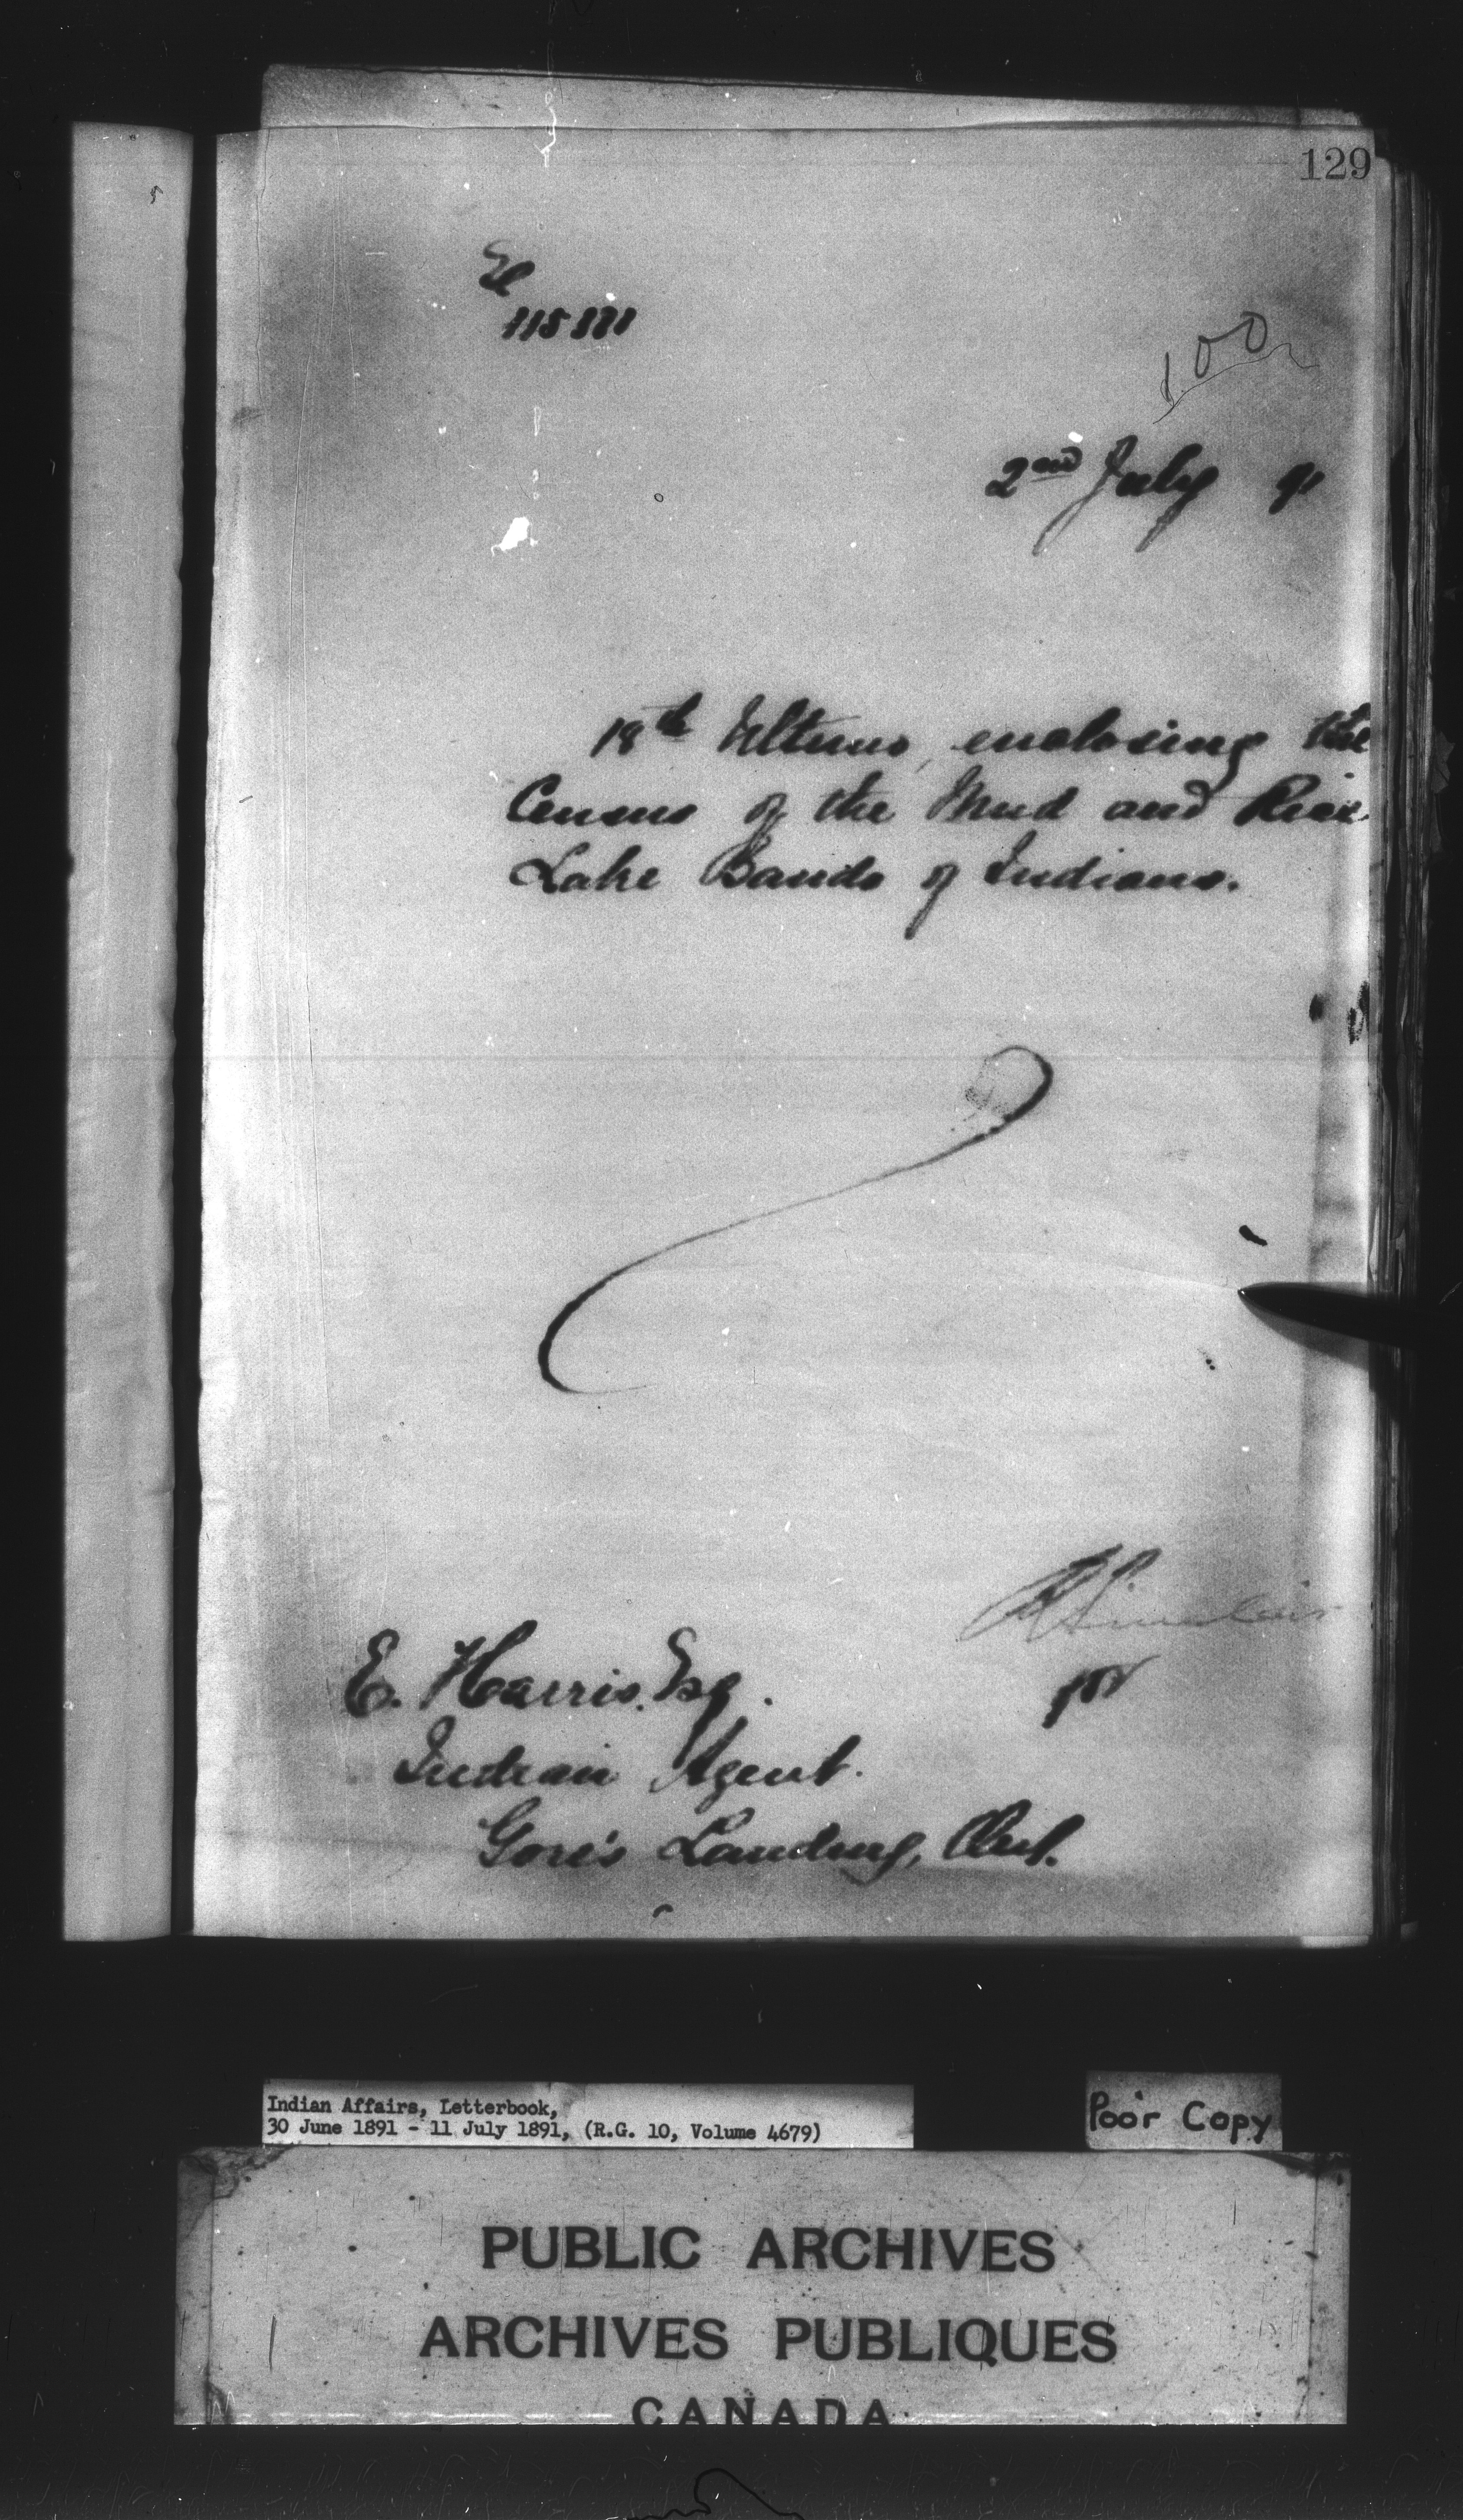 129
115881
100
2nd July 91
18th Ultimo, enclosing the
Census of the Mud and Rice
Lake Bands of Indians.
R Sinclair
for
E. Harris. Esq.
Indian Agent.
Gore's Landing, Ont.
Indian Affairs, Letterbook,
30 June 1891 - 11 July 1891, (R.G. 10, Volume 4679)
Poor Copy
PUBLIC ARCHIVES
ARCHIVES PUBLIQUES
CANADA